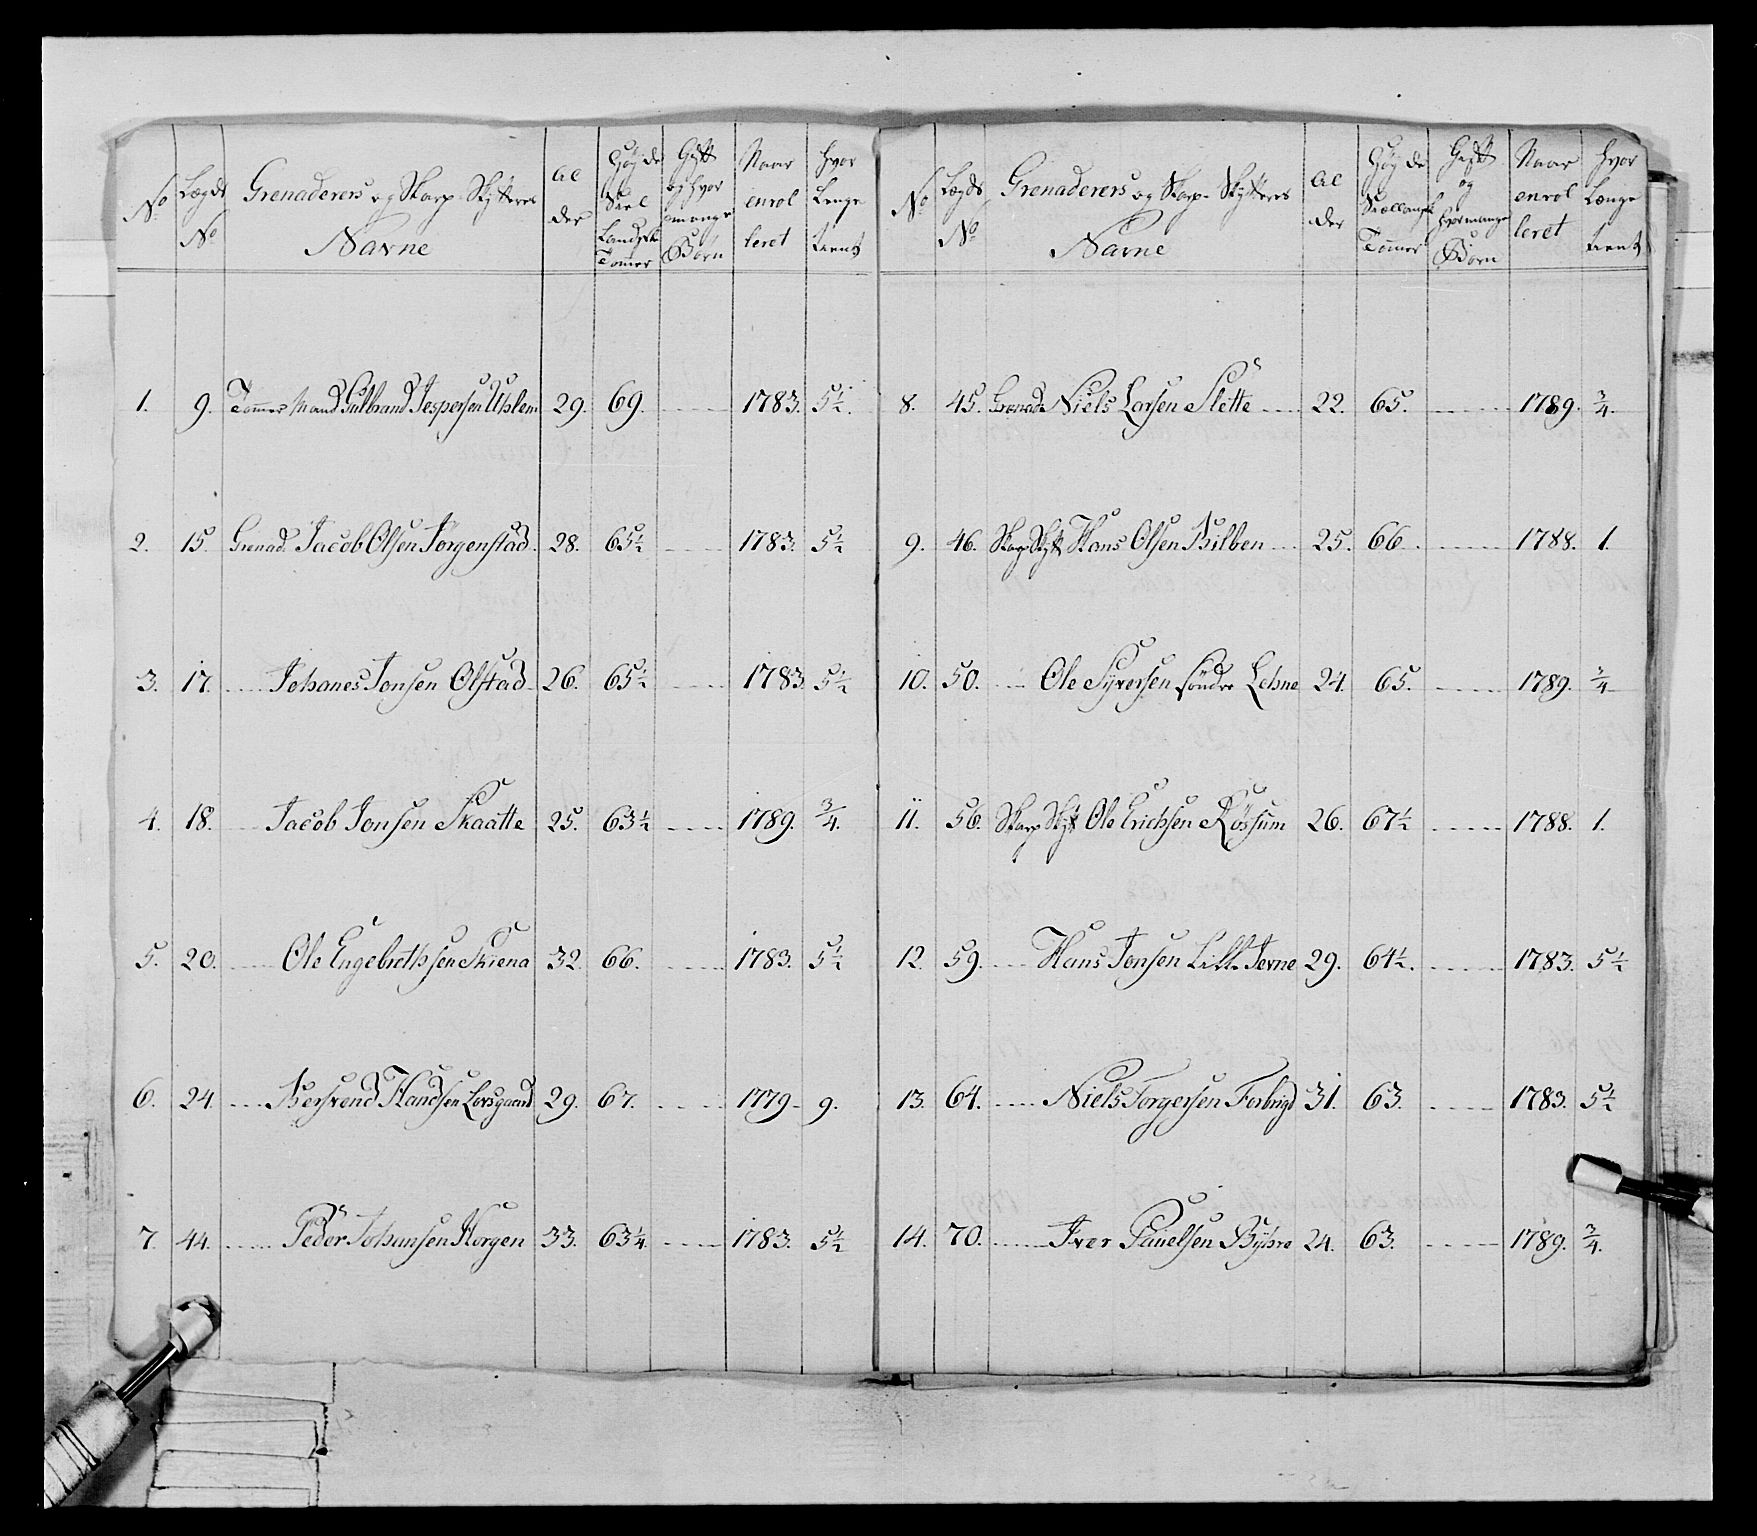 No Lægds No Grenaderers og Skarp Skytteres Navne Al der Høyde Siel Landske Tommer Gift og hvor mange Børn Naar enrol leret Hvor Lenge tient
1. 9. Tømmer Mand Gulbrand Jespersen Uhlen 29. 69. 1783. 5½.
2. 15. Grenad. Jacob Olsen Jørgenstad 28. 65½ 1783. 5½
3. 17. Johanes Jonsen Olstad 26. 65½ 1783. 5½
4. 18. Jacob Jonsen Skaatte 25. 63½ 1789. ¾.
5. 20. Ole Engebrethsen Skiena 32. 66. 1783. 5½
6. 24. Bersvend Handsen Lovsgaard 29. 67. 1779. 9.
7. 44. Peder Johansen Horgen 33. 63¼ 1783. 5½
No Lægds No Grenaderers og Skarp-Skytteres Navne Al der Høy de Siællansk Tommer Gift og Hvor mange Børn Naar enrol leret Hvor Længe tient
8. 45. Grenad Niels Larsen Slette 22. 65. 1789. ¾.
9. 46. Skarp Skytt Hans Olsen Bilben 25. 66. 1788. 1.
10. 50. Ole Syversen søndre Lehne 24. 65. 1789. ¾
11. 56. Skarp Skytt Ole Erichsen Røssum 26. 67½ 1788. 1.
12. 59. Hans Jonsen Lille Jevne 29. 64½. 1783. 5½
13. 64. Niels Torgersen Forbrigd 31. 63. 1783. 5½
14. 70. Iver Pauelsen Byhre 24. 63. 1789. ¾.